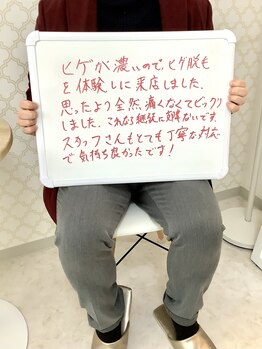 ヒゲが濃いので、ヒゲ脱毛
を体験しに来店しました。
思ったより全然、痛くなくてビックリ
しました。これなら継続に効果ないです。
スタッフさんもとても丁寧な対応
で気持ち良かったです!